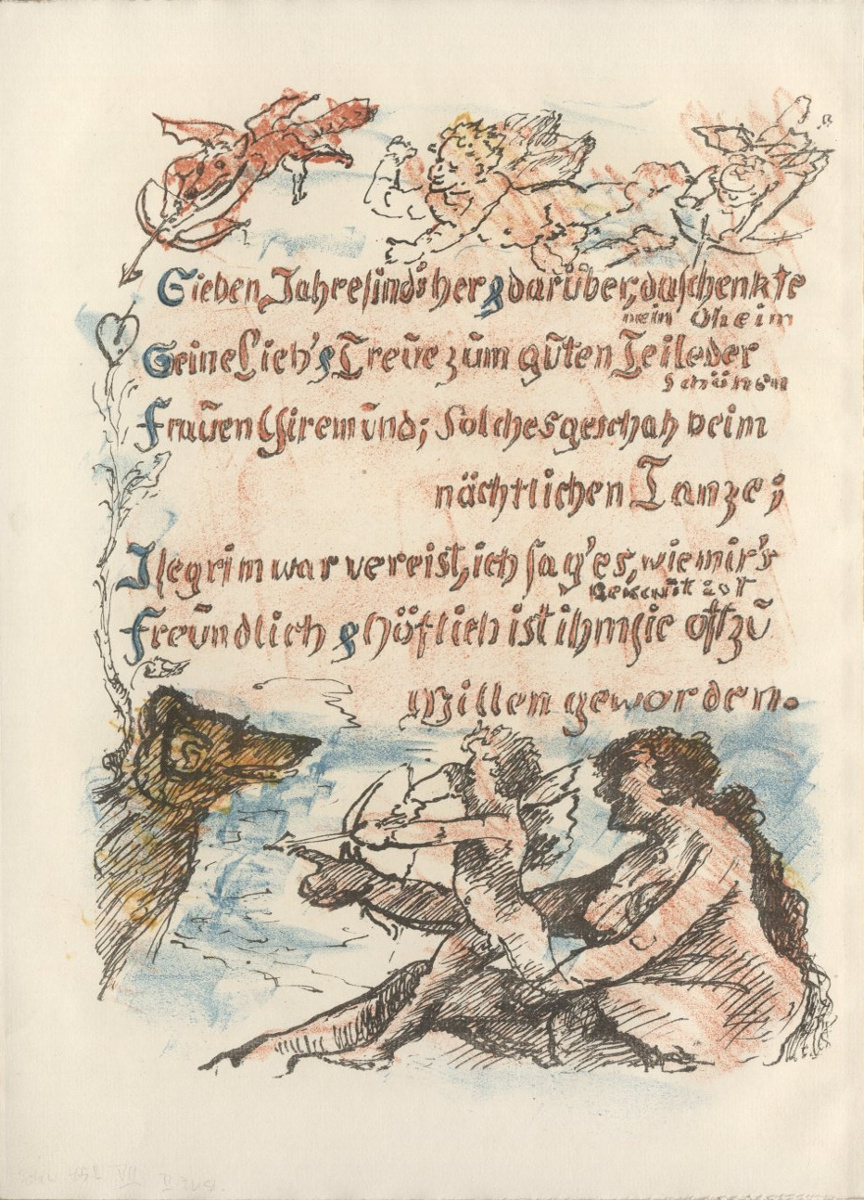 Sieben Jahre sind's her & darüber, da schenkte
mein Oheim
Seine Lieb' & Treue zum guten Teile der
schönen
Frauen Gieremund; solches geschah beim
nächtlichen Tanze;
Isegrim war vereist, ich sag' es, wie mir's
bekannt ist
Freundlich & höflich ist ihm sie oft zu
Willen geworden.